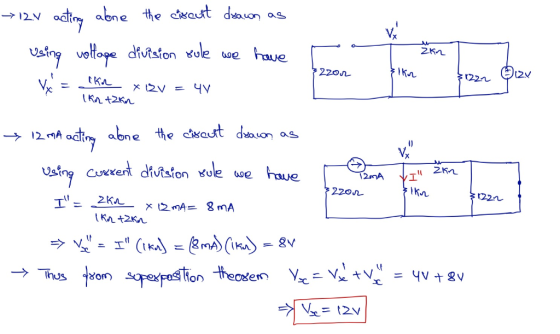 → 12V acting alone the circuit drawn as
Using voltage division rule we have
Vx' = 1KΩ / (1KΩ+2KΩ) × 12V = 4V
Vx'
2KΩ
220Ω
1KΩ
122Ω
12V
→ 12mA acting alone the circuit drawn as
Using current division rule we have
I'' = 2KΩ / (1KΩ+2KΩ) × 12mA = 8mA
⇒ Vx'' = I'' (1KΩ) = (8mA)(1KΩ) = 8V
Vx''
12mA
I''
2KΩ
220Ω
1KΩ
122Ω
→ Thus from superposition theorem Vx = Vx' + Vx'' = 4V + 8V
⇒ Vx = 12V